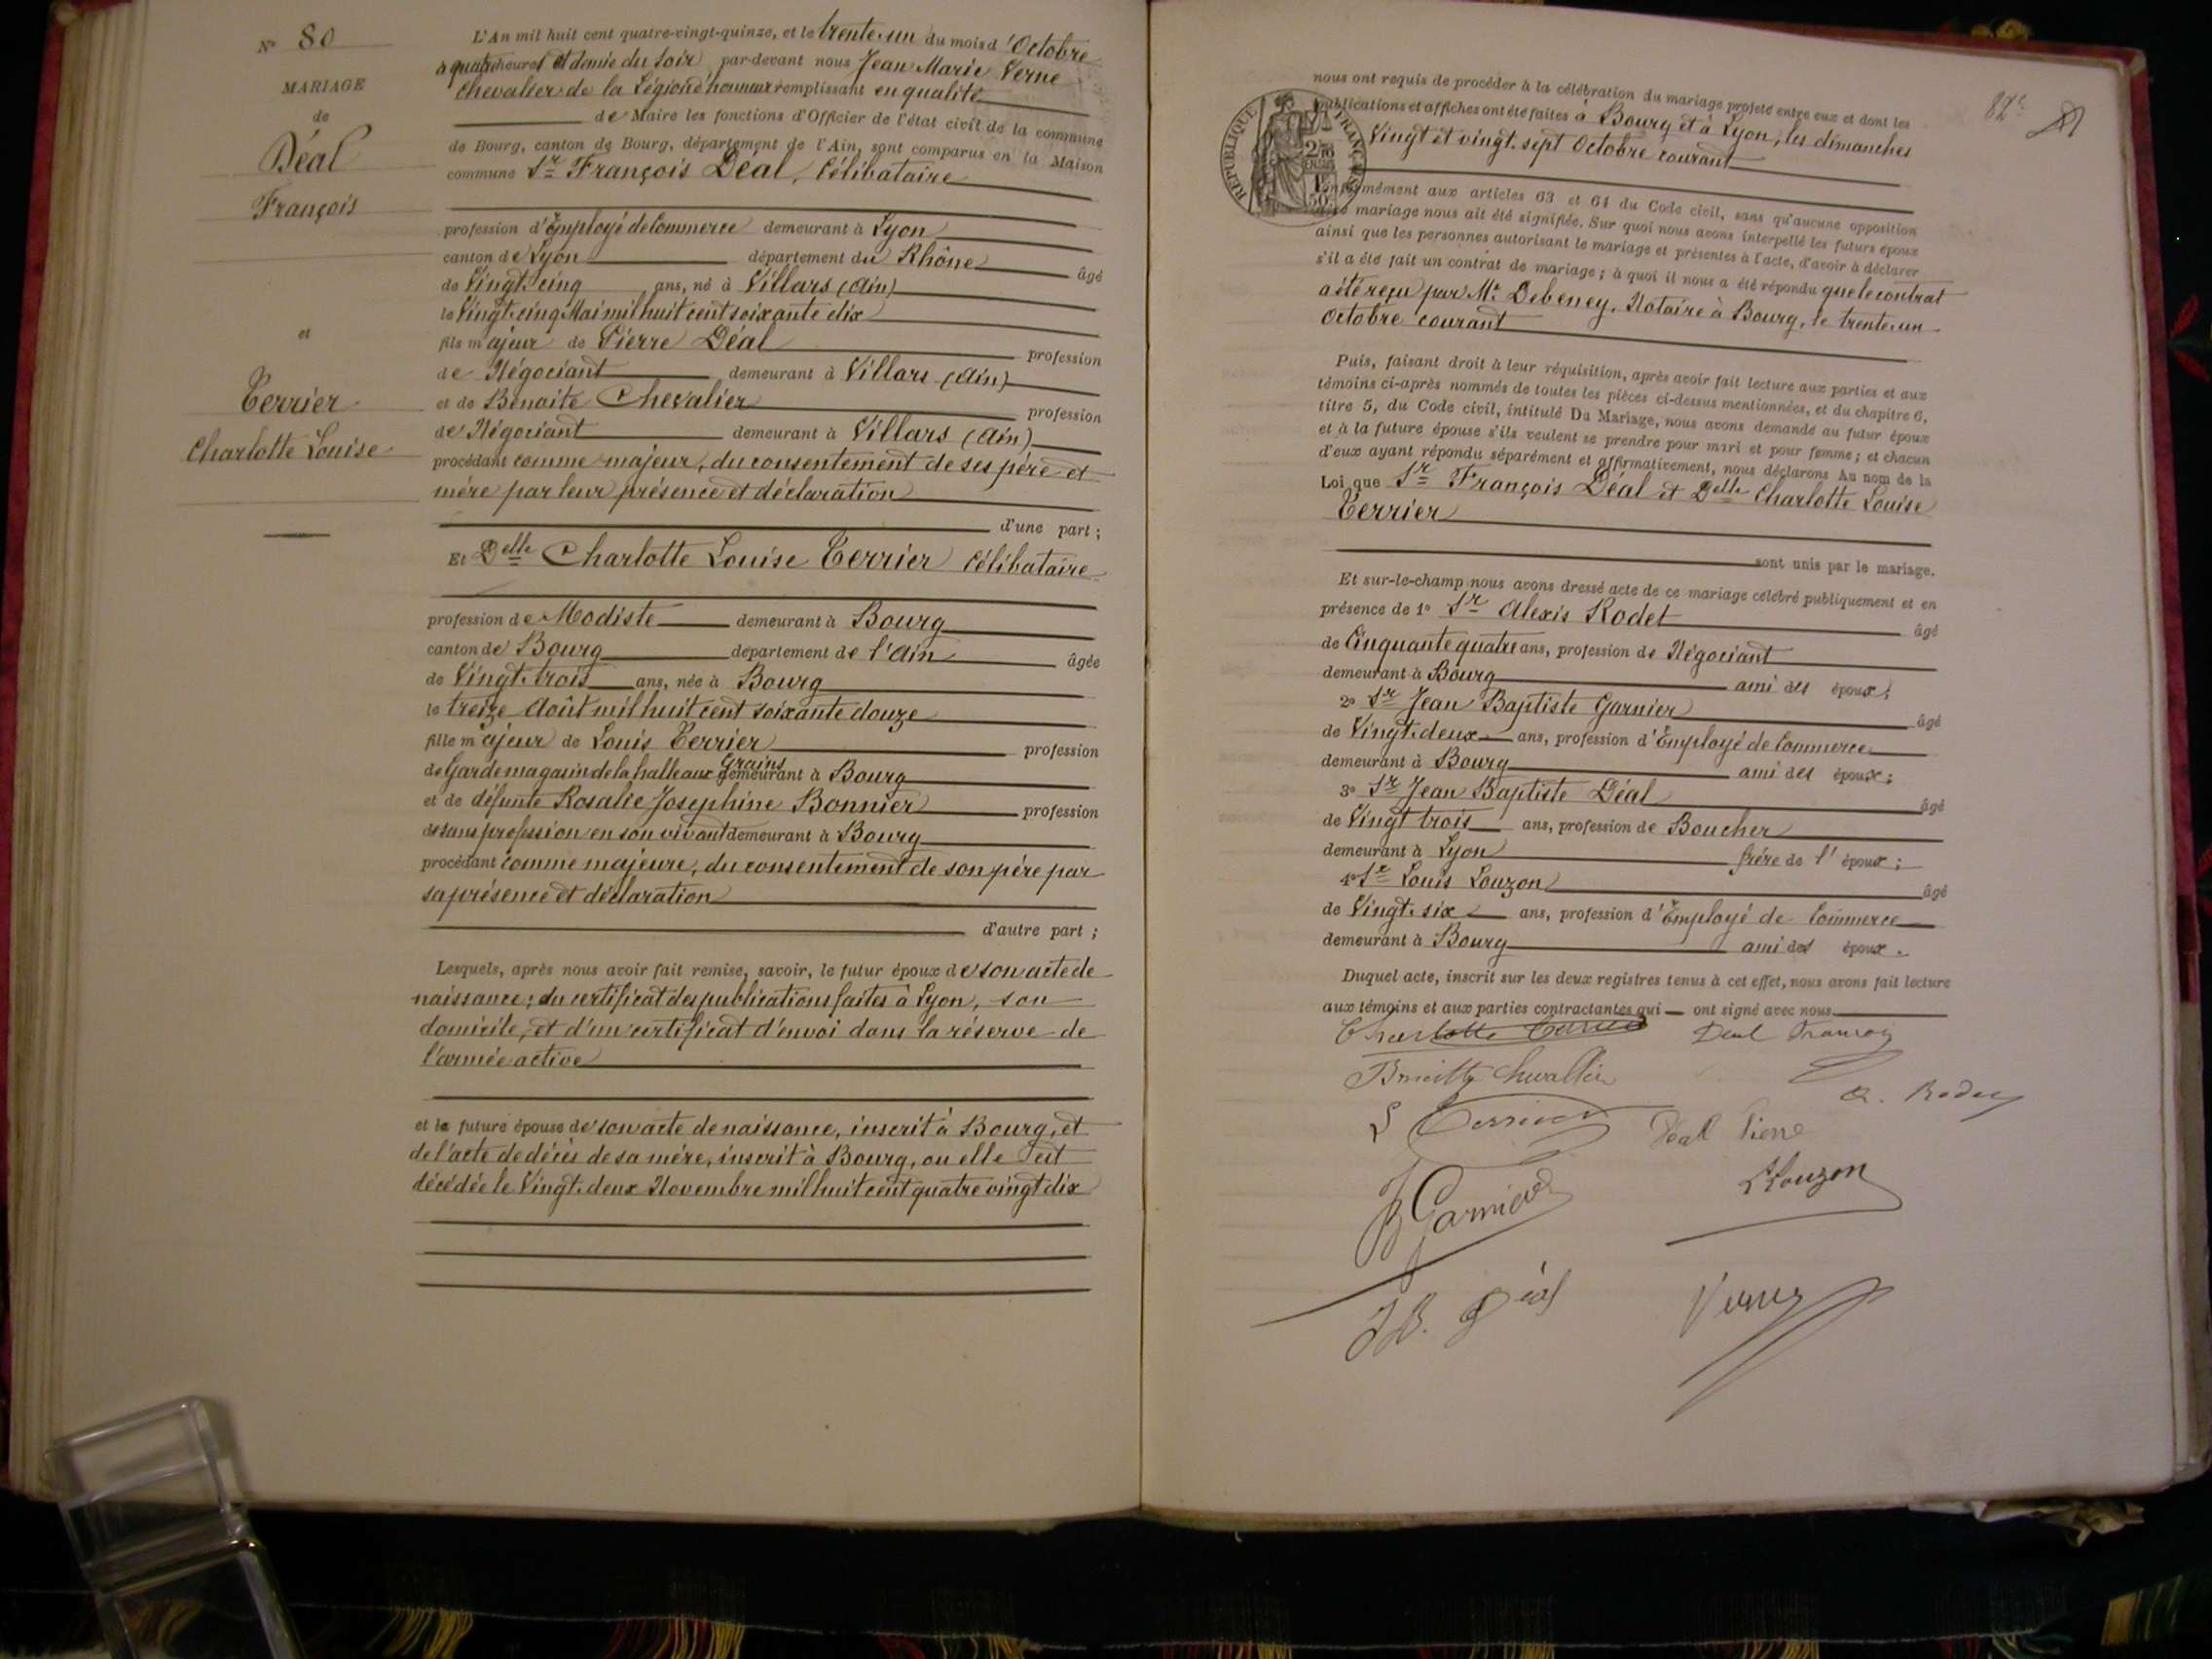 N° 80
MARIAGE
de
Déal
François
et
Terrier
Charlotte Louise
L'An mil huit cent quatre-vingt-quinze, et le trente-un du mois d'Octobre
à quatre heures et demie du soir par-devant nous Jean Marie Verne
Chevalier de la Légion d'honneur remplissant en qualité
de Maire les fonctions d'Officier de l'état civil de la commune
de Bourg, canton de Bourg, département de l'Ain, sont comparus en la Maison
commune Sr François Déal, Célibataire
profession d'Employé de Commerce demeurant à Lyon
canton de Lyon département du Rhône âgé
de Vingt-cinq ans, né à Villars (Ain)
le Vingt-cinq Mai mil huit cent soixante dix
fils majeur de Pierre Déal profession
de Négociant demeurant à Villars (Ain)
et de Benoite Chevalier profession
de Négociant demeurant à Villars (Ain)
procédant comme majeur, du consentement de ses père et
mère par leur présence et déclaration
d'une part ;
Et Delle Charlotte Louise Terrier Célibataire
profession de Modiste demeurant à Bourg
canton de Bourg département de l'Ain âgée
de Vingt-trois ans, née à Bourg
le treize Août mil huit cent soixante douze
fille majeur de Louis Terrier profession
de Garde magasin de la halle aux Grains demeurant à Bourg
et de défunte Rosalie Josephine Bonnier profession
de sans profession en son vivant demeurant à Bourg
procédant comme majeure, du consentement de son père par
sa présence et déclaration
d'autre part ;
Lesquels, après nous avoir fait remise, savoir, le futur époux de son acte de
naissance ; du certificat des publications faites à Lyon, son
domicile, et d'un certificat d'envoi dans la réserve de
l'armée active
et la future épouse de son acte de naissance, inscrit à Bourg, et
de l'acte de décès de sa mère, inscrit à Bourg, ou elle est
décédée le Vingt-deux Novembre mil huit cent quatre vingt dix
82e
nous ont requis de procéder à la célébration du mariage projeté entre eux et dont les
publications et affiches ont été faites à Bourg et à Lyon, les dimanches
Vingt et vingt-sept Octobre courant
RÉPUBLIQUE FRANÇAISE
conformément aux articles 63 et 64 du Code civil, sans qu'aucune opposition
mariage nous ait été signifiée. Sur quoi nous avons interpellé les futurs époux
ainsi que les personnes autorisant le mariage et présentes à l'acte, d'avoir à déclarer
s'il a été fait un contrat de mariage ; à quoi il nous a été répondu que le contrat
a été reçu par Me Debeney, Notaire à Bourg, le trente-un
Octobre courant
Puis, faisant droit à leur réquisition, après avoir fait lecture aux parties et aux
témoins ci-après nommés de toutes les pièces ci-dessus mentionnées, et du chapitre 6,
titre 5, du Code civil, intitulé Du Mariage, nous avons demandé au futur époux
et à la future épouse s'ils veulent se prendre pour mari et pour femme ; et chacun
d'eux ayant répondu séparément et affirmativement, nous déclarons Au nom de la
Loi que Sr François Déal et Delle Charlotte Louise
Terrier
sont unis par le mariage.
Et sur-le-champ nous avons dressé acte de ce mariage célébré publiquement et en
présence de 1° Sr Alexis Rodet âgé
de Cinquante quatre ans, profession de Négociant
demeurant à Bourg ami des époux ;
2° Sr Jean Baptiste Garnier âgé
de Vingt-deux ans, profession d'Employé de Commerce
demeurant à Bourg ami des époux ;
3° Sr Jean Baptiste Déal âgé
de Vingt trois ans, profession de Boucher
demeurant à Lyon frère de l'époux ;
4° Sr Louis Louzon âgé
de Vingt-six ans, profession d'Employé de Commerce
demeurant à Bourg ami des époux.
Duquel acte, inscrit sur les deux registres tenus à cet effet, nous avons fait lecture
aux témoins et aux parties contractantes qui ont signé avec nous
Charlotte Terrier Deal François
Benoitte Chevallier
A. Rodet
L Terrier Déal Pierre
JB Garnier L Louzon
J B. Déal Verne